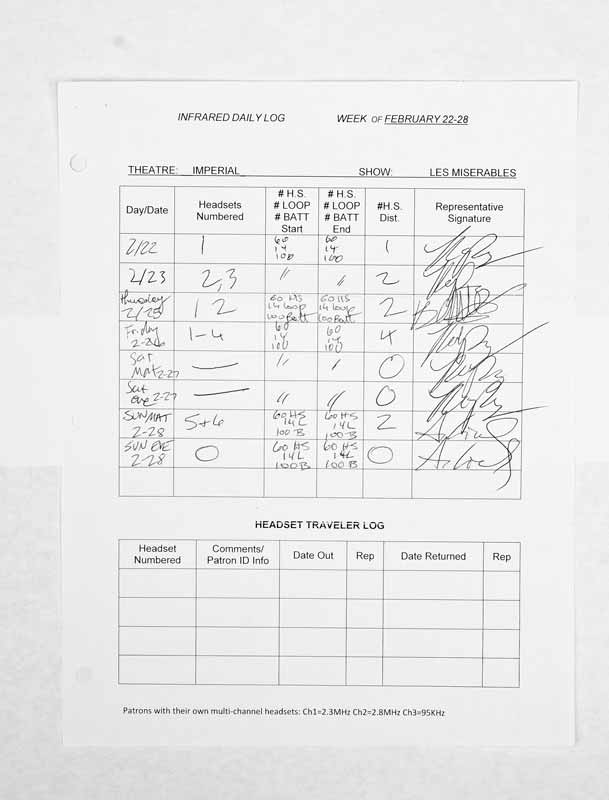 INFRARED DAILY LOG WEEK OF FEBRUARY 22-28
THEATRE: IMPERIAL SHOW: LES MISERABLES
Day/Date
Headsets
Numbered
# H.S.
# LOOP
# BATT
Start
# H.S.
# LOOP
# BATT
End
#H.S.
Dist.
Representative
Signature
2/22
1
60
14
100
60
14
100
1
2/23
2,3
"
"
2
Thursday
2/25
1 2
60 HS
14 loop
100 Batt
60 HS
14 loop
100 Batt
2
Friday
2-26
1-4
60
14
100
60
14
100
4
Sat
Mat 2-27
—
"
"
0
Sat
eve 2-27
—
"
"
0
SUN MAT
2-28
5+6
60 HS
14L
100B
60 HS
14L
100B
2
SUN EVE
2-28
0
60 HS
14L
100B
60 HS
14L
100B
0
HEADSET TRAVELER LOG
Headset
Numbered
Comments/
Patron ID Info
Date Out
Rep
Date Returned
Rep
Patrons with their own multi-channel headsets: Ch1=2.3MHz Ch2=2.8MHz Ch3=95KHz